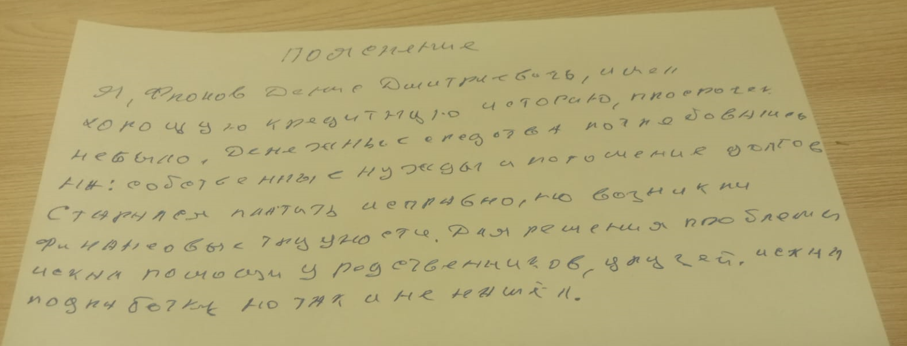 Пояснение
Я, Фролов Денис Дмитриевичь, имел
хорошую кредитную историю, просрочек
небыло. Денежные средства потребовались
на: собственные нужды и погошение долгов.
Старался платить исправно, но возникли
финансовые трудности. Для решения проблемы
искал помощи у родственников, друзей, искал
подработку но так и не нашёл.